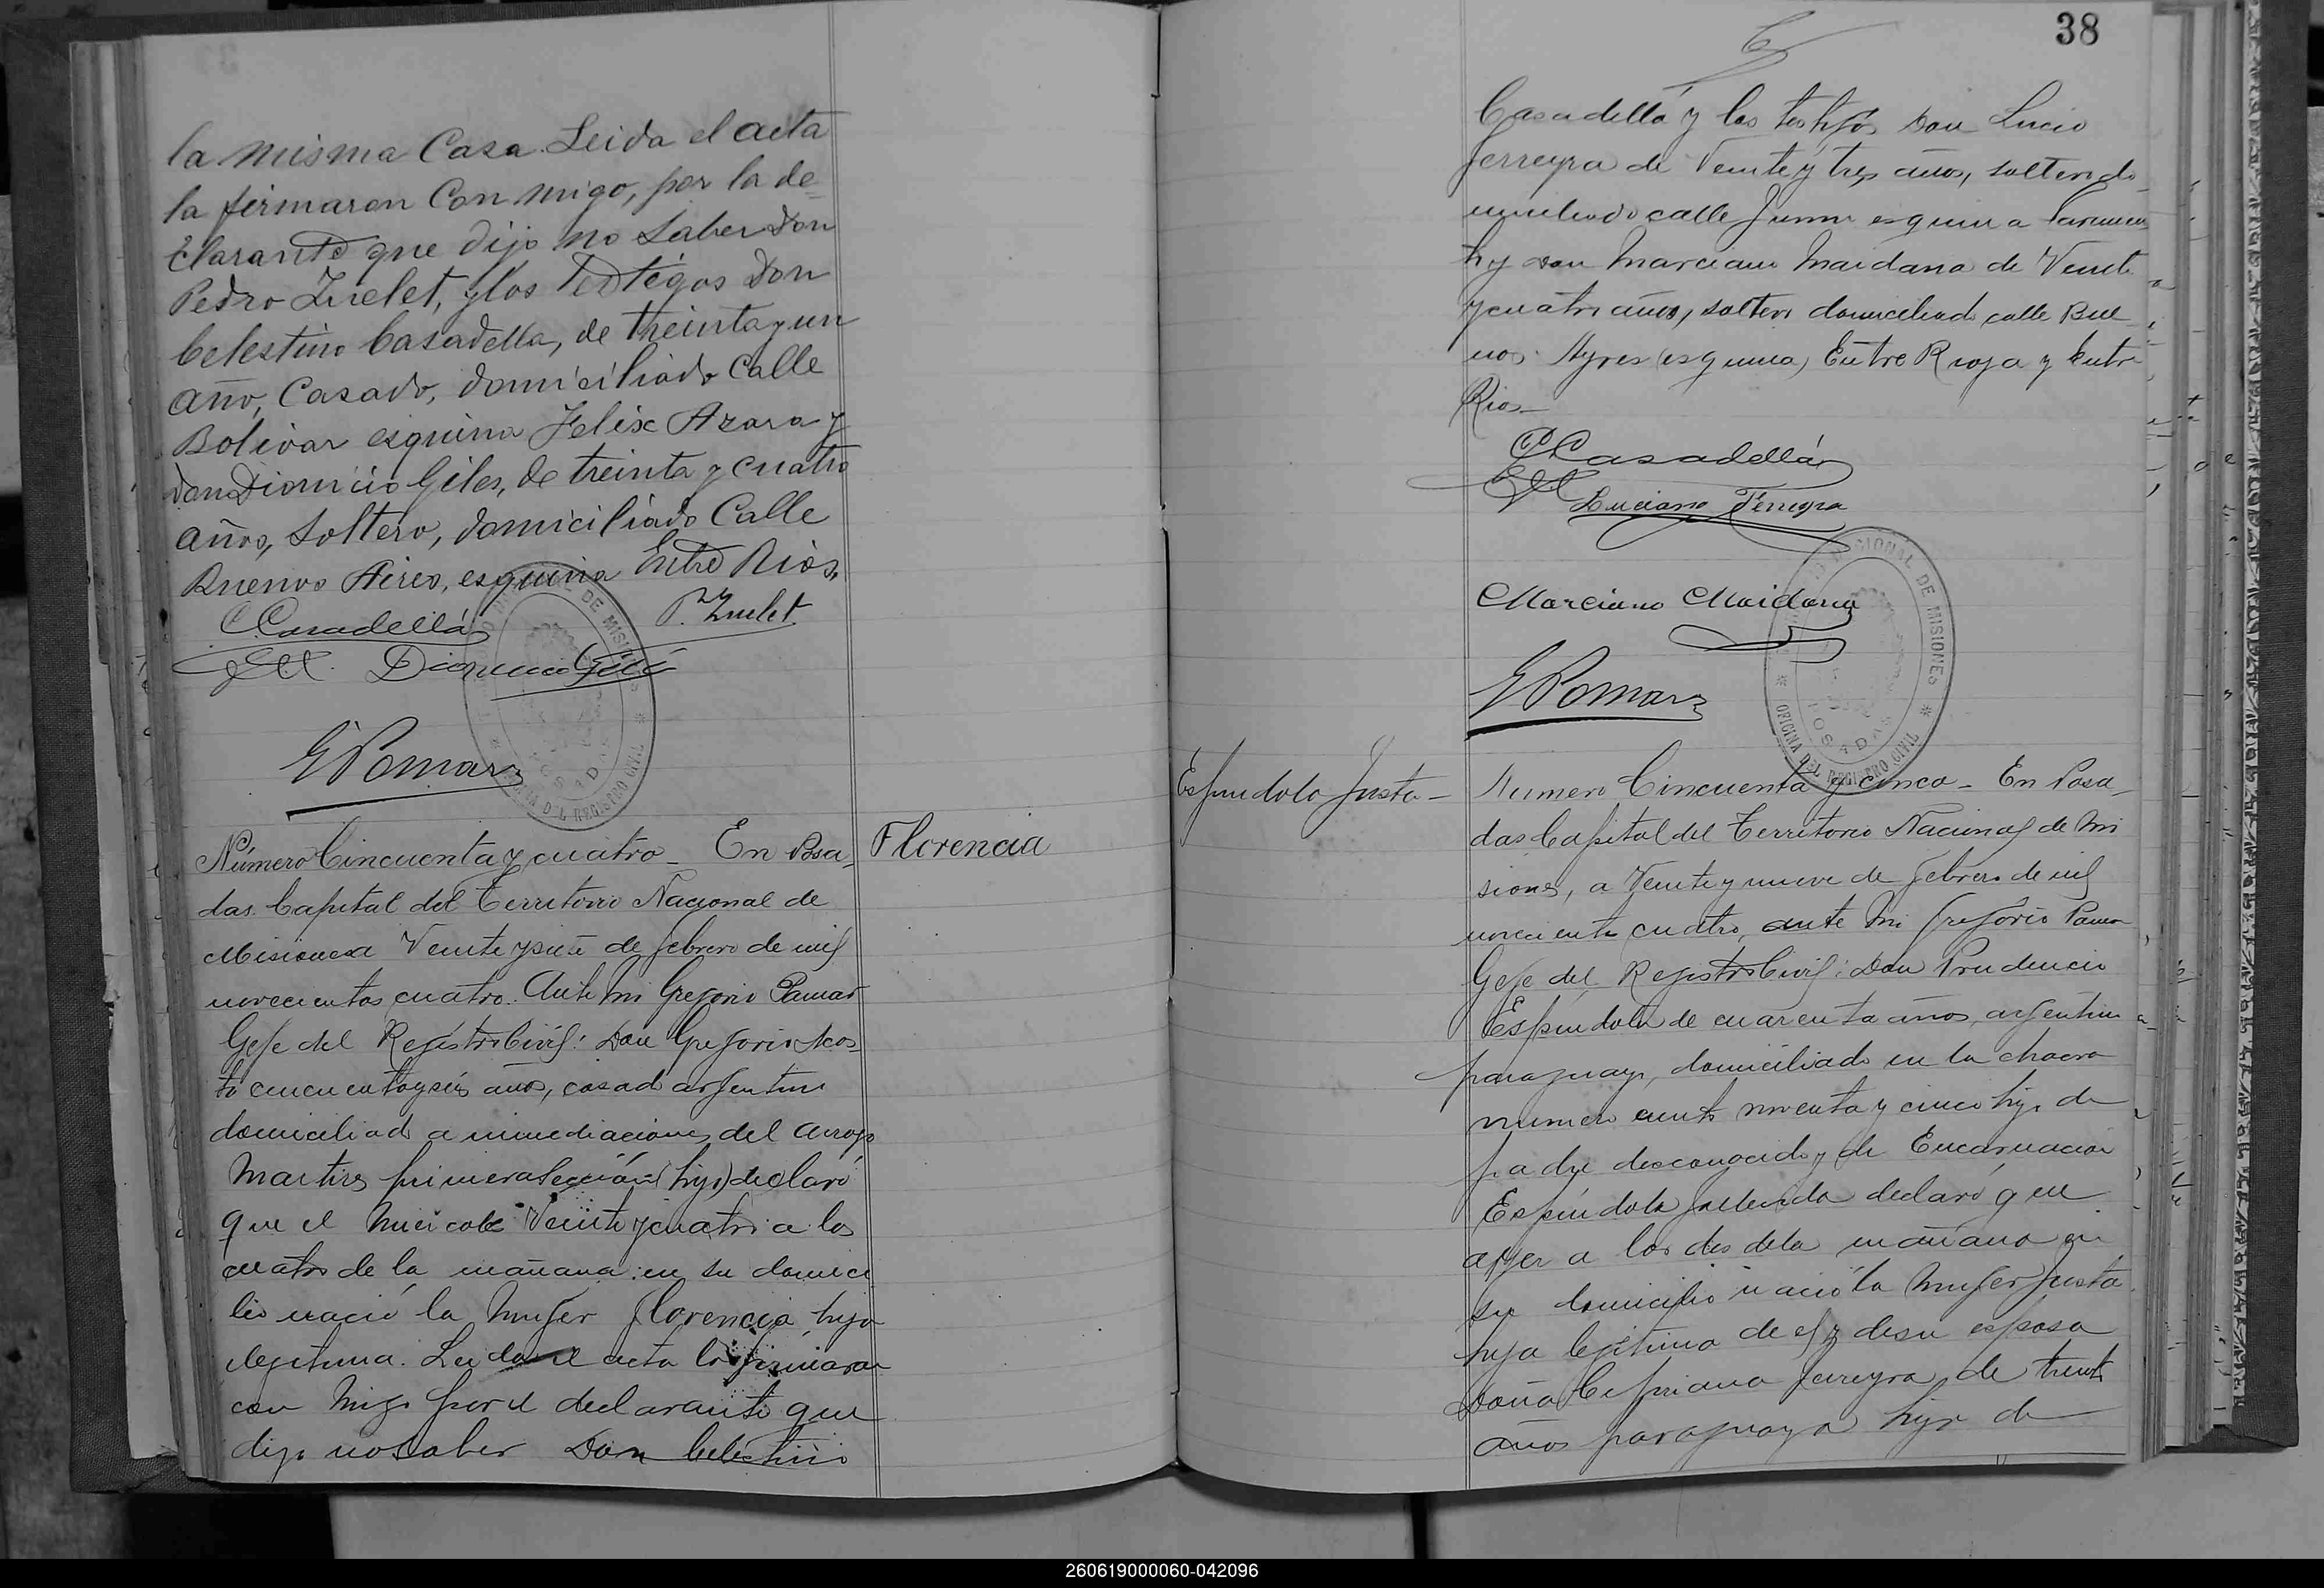 la misma Casa. Leida el acta
la firmaron Con migo, por la de=
clarante que dijo no saber Don
Pedro Zuelet, y los testigos Don
Celestino Casadella, de treinta y un
año, Casado, domiciliado Calle
Bolivar esquina Felix Azara y
Don Dionicio Giles, de treinta y cuatro
años, Soltero, domiciliado Calle
Buenos Aires, esquina Entre Rios,
CCasadellá P. Zuelet
Dionicio
G Pomar
Número Cincuenta y cuatro _ En Posa_
das Capital del Territorio Nacional de
Misiones a Veinte y siete de febrero de mil
novecientos cuatro. Ante mi Gregorio Pomar
Gefe del Registro Civil: Don Gregorio Acos_
ta cincuenta y seis años, casado argentino
domiciliado a inmediaciones del arroyo
Martires primera Sección (hijo) declaró
que el miercoles Veinte y cuatro a las
cuatro de la mañana en su domici
lio nació la Mujer Florencia hija
legitima. Leida el acta la firmaron
con migo por el declarante que
dijo no saber Don Celestino
Florencia
38
Casadellá y los testigos Don Lucio
Ferreyra de Veinte y tres años, soltero do_
miciliado calle Junin esquina
y Don Marciano Maidana de Veinte
y cuatro años, soltero domiciliado calle Bue_
nos Ayres (esquina) Entre Rioja y Entre
Rios_
CCasadellá
Luciano Ferreyra
Marciano Maidana
G Pomar
TERRITORIO NACIONAL DE MISIONES
POSADAS
OFICINA DEL REGISTRO CIVIL
Espindola Justa_
Numero Cincuenta y cinco _ En Posa_
das Capital del Territorio Nacional de Mi
siones, a Veinte y nueve de febrero de mil
novecientos cuatro, ante mi Gregorio Pomar
Gefe del Registro Civil: Don Prudencio
Espindola de cuarenta años, argentino
paraguayo, domiciliado en la chacra
numero ciento noventa y cinco hijo de
padre desconocido y de Encarnacion
Espindola fallecida declaró que
ayer a las dos de la mañana en
su domicilio nació la Mujer Justa
hija legitima de el y de su esposa
Doña Cipriana Ferreyra de treinta
años paraguaya hija de
260619000060-042096